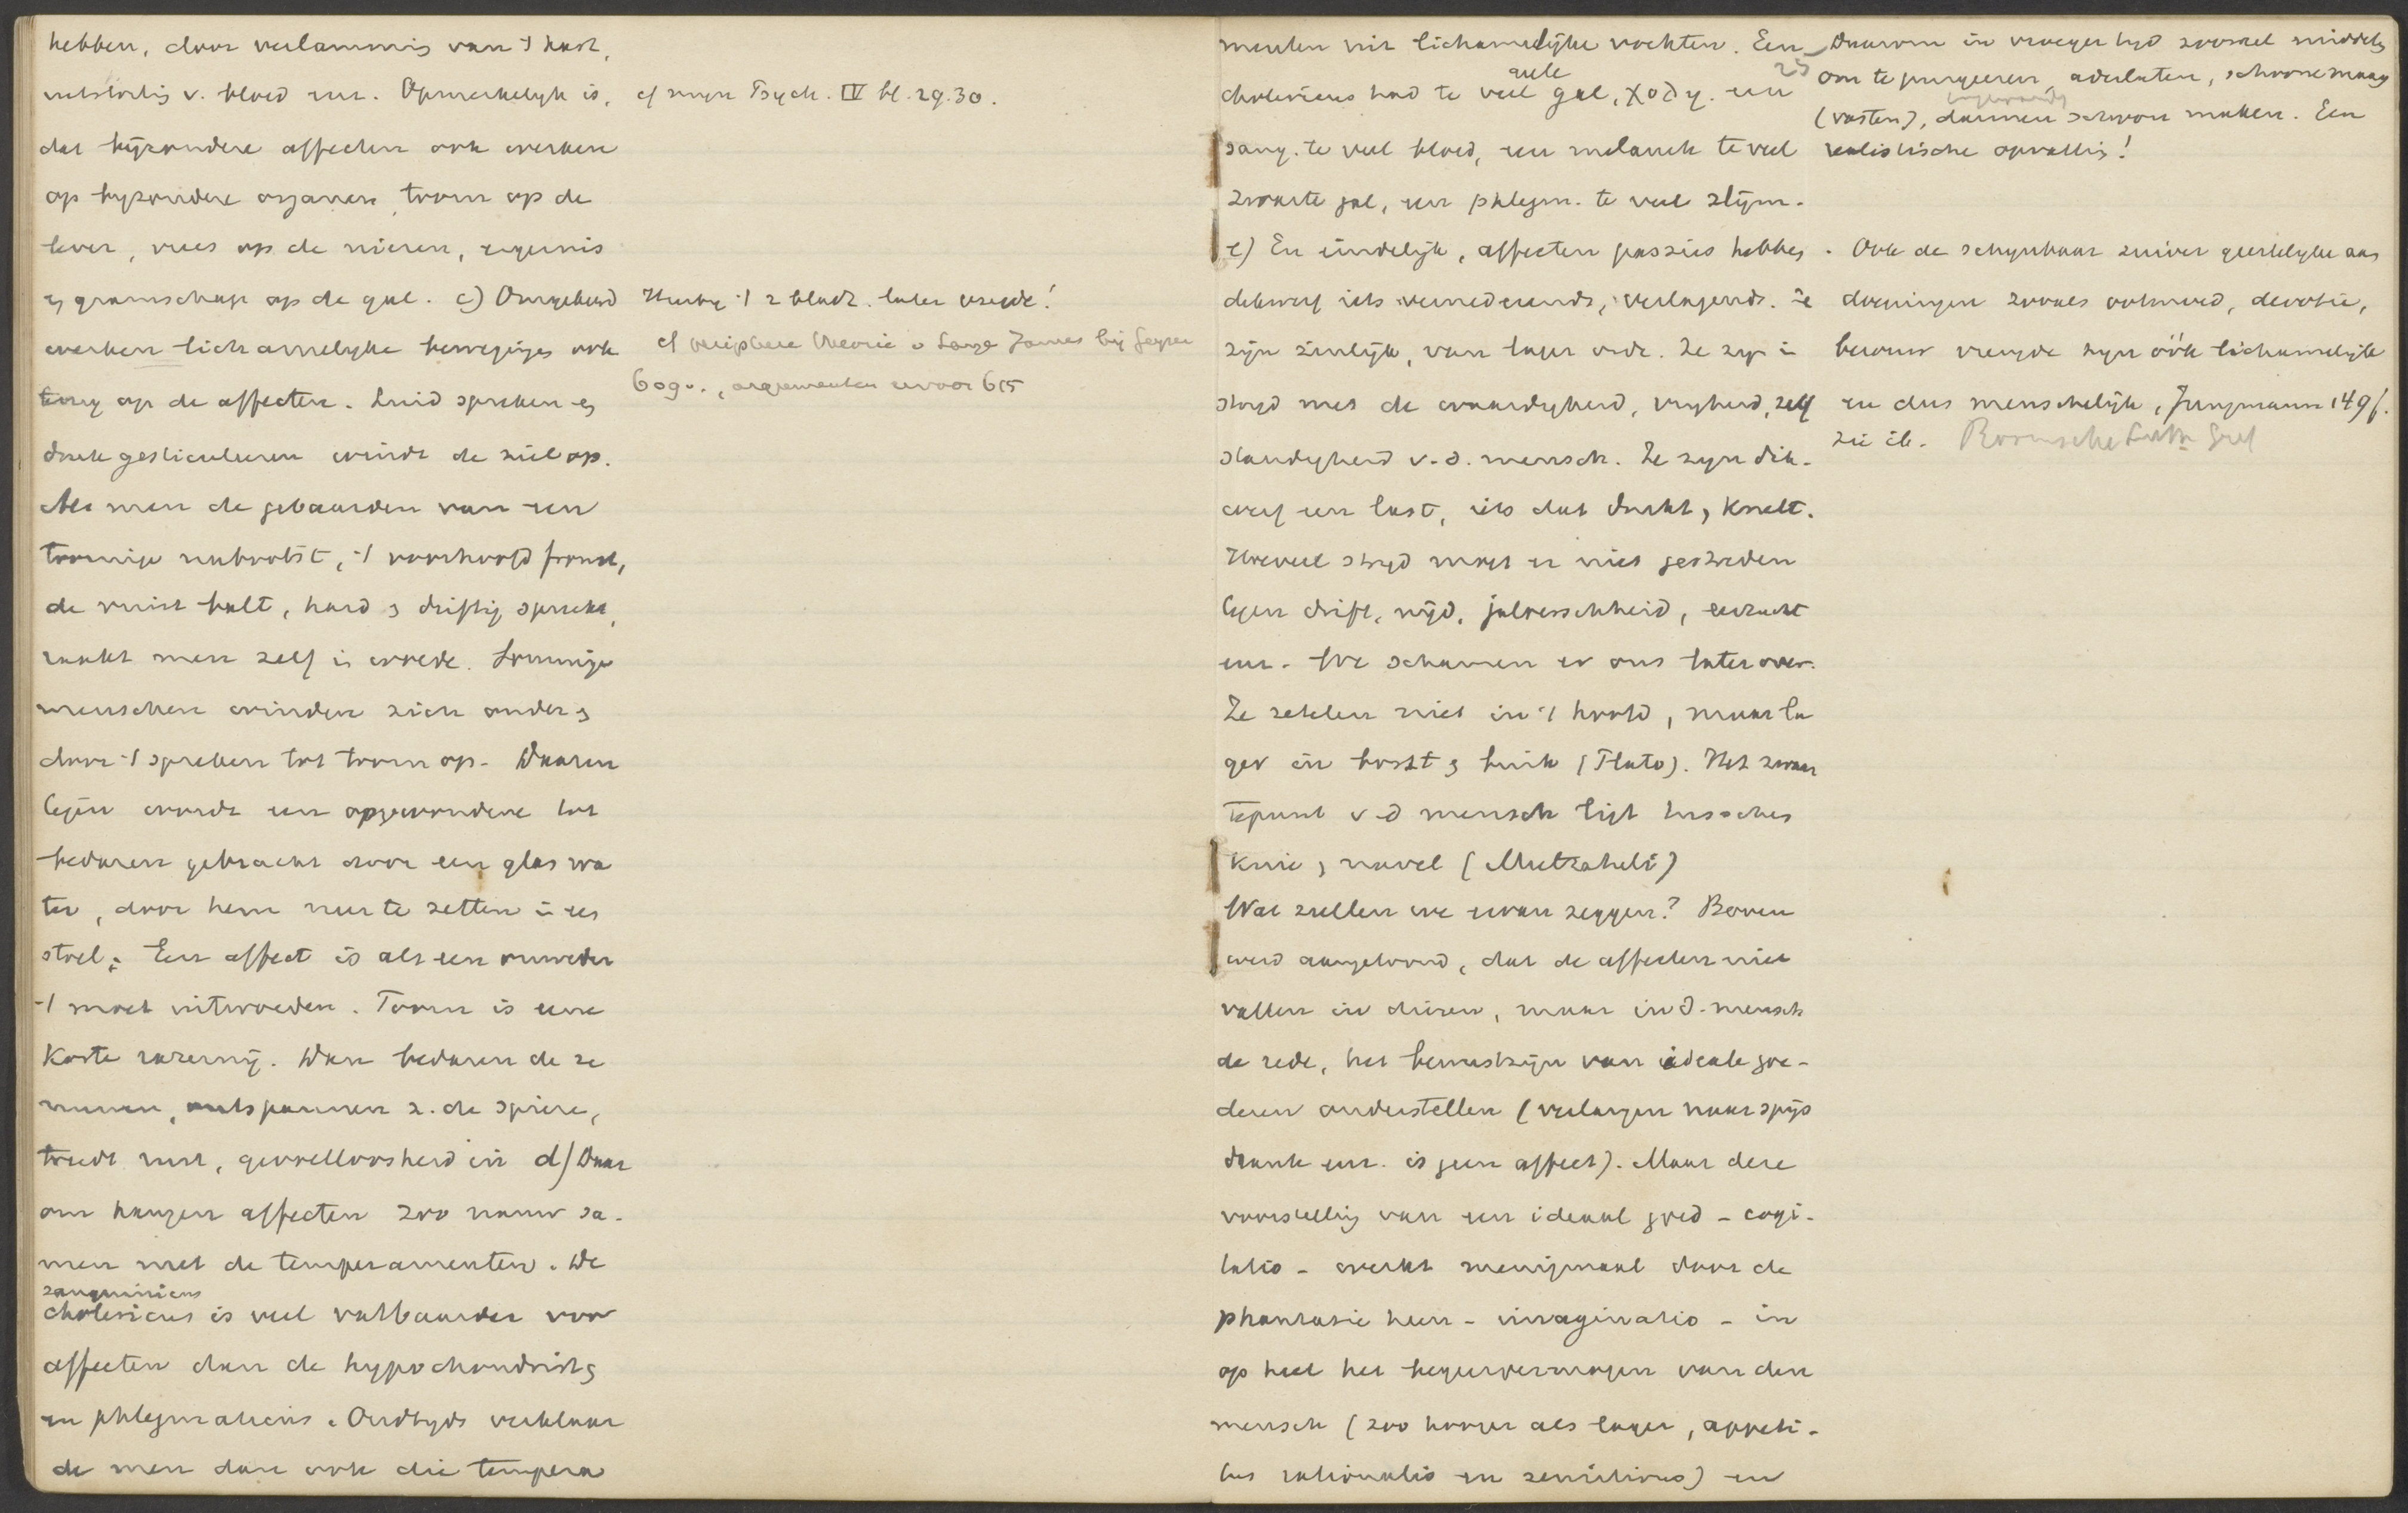 hebben, door verlamming van 't hart,
uitstorting v. bloed enz. Opmerkelijk is,
dat bijzondere affecten ook werken
op bijzondere organen, toorn op de
lever, vrees op de nieren, ergernis
en gramschap op de gal. c) Omgekeerd
werken lichamelijke bewegingen ook
terug op de affecten. Luid spreken en
druk gesticuleeren windt de ziel op.
Als men de gebaarden van een
toornige nabootst, 't voorhoofd fronst,
de vuist balt, hard en driftig spreekt,
raakt men zelf in woede. Sommige
menschen winden zich onder
door 't spreken tot toorn op. Daaren
tegen wordt een opgewondene tot
bedaren gebracht door een glas wa
ter, door hem neer te zetten in een
stoel; Een affect is als een onweder
't moet uitwoeden. Toorn is eene
korte razernij. Dan bedaren de ze
nuwen, ontspannen z. de spieren,
treedt rust, gevoelloosheid in d) Daar
om hangen affecten zoo nauw sa-
men met de temperamenten. De
sanguinicus
cholericus is veel vatbaarder voor
affecten dan de hypochondrist en
en phlegmaticus. Oudtijds verklaar
de men dan ook die tempera
cf mijn Psych. IV bl. 29.30.
Hierbij 't 2 bladz. later vierde!
cf periphere theorie v Lange James bij Geyser
609v., argumenten ervoor 615
menten uit lichamelijke vochten. Een
gele
cholericus had te veel gal, χολη. een
25
sang. te veel bloed, een melanch te veel
zwarte gal, een phlegm. te veel slijm.
e) En eindelijk, affecten passies hebben
dikwerf iets vernederends, verlagends. Ze
zijn zinlijk, van lager orde. Ze zijn in
strijd met de waardigheid, vrijheid, zelf
standigheid v.d. mensch. Ze zijn dik-
werf een last, iets dat drukt, knelt.
Hoeveel strijd moet er niet gestreden
tegen drift, nijd, jaloerschheid, eerzucht
enz. We schamen er ons later over.
Ze zetelen niet in 't hoofd, maar la
ger in borst en buik (Plato). Het zwaar
tepunt v.d mensch ligt tusschen
knie en navel (Multatuli)
Wat zullen we ervan zeggen? Boven
werd aangetoond, dat de affecten niet
vallen in dieren, maar in d. mensch
de rede, het bewustzijn van ideale goe-
deren onderstellen (verlangen naar spijs
drank enz. is geen affect). Maar deze
voorstelling van een ideaal goed - cogi-
tatio - werkt menigmaal door de
phantasie heen - imaginatio - in
op heel het begeervermogen van den
mensch (zoo hooger als lager, appeti-
tus rationalis en sensitivus) en
Daarom in vroeger tijd zooveel middelen
om te purgeeren, aderlaten, schoone maag
(vasten), darmen schoon maken. Een
realistische opvatting!
Ook de schijnbaar zuiver geestelijke aan
doeningen zooals ootmoed, devotie,
berouw vreugde zijn óók lichamelijk
en dus menschelijk, Jungmann 149f.
zie ib.